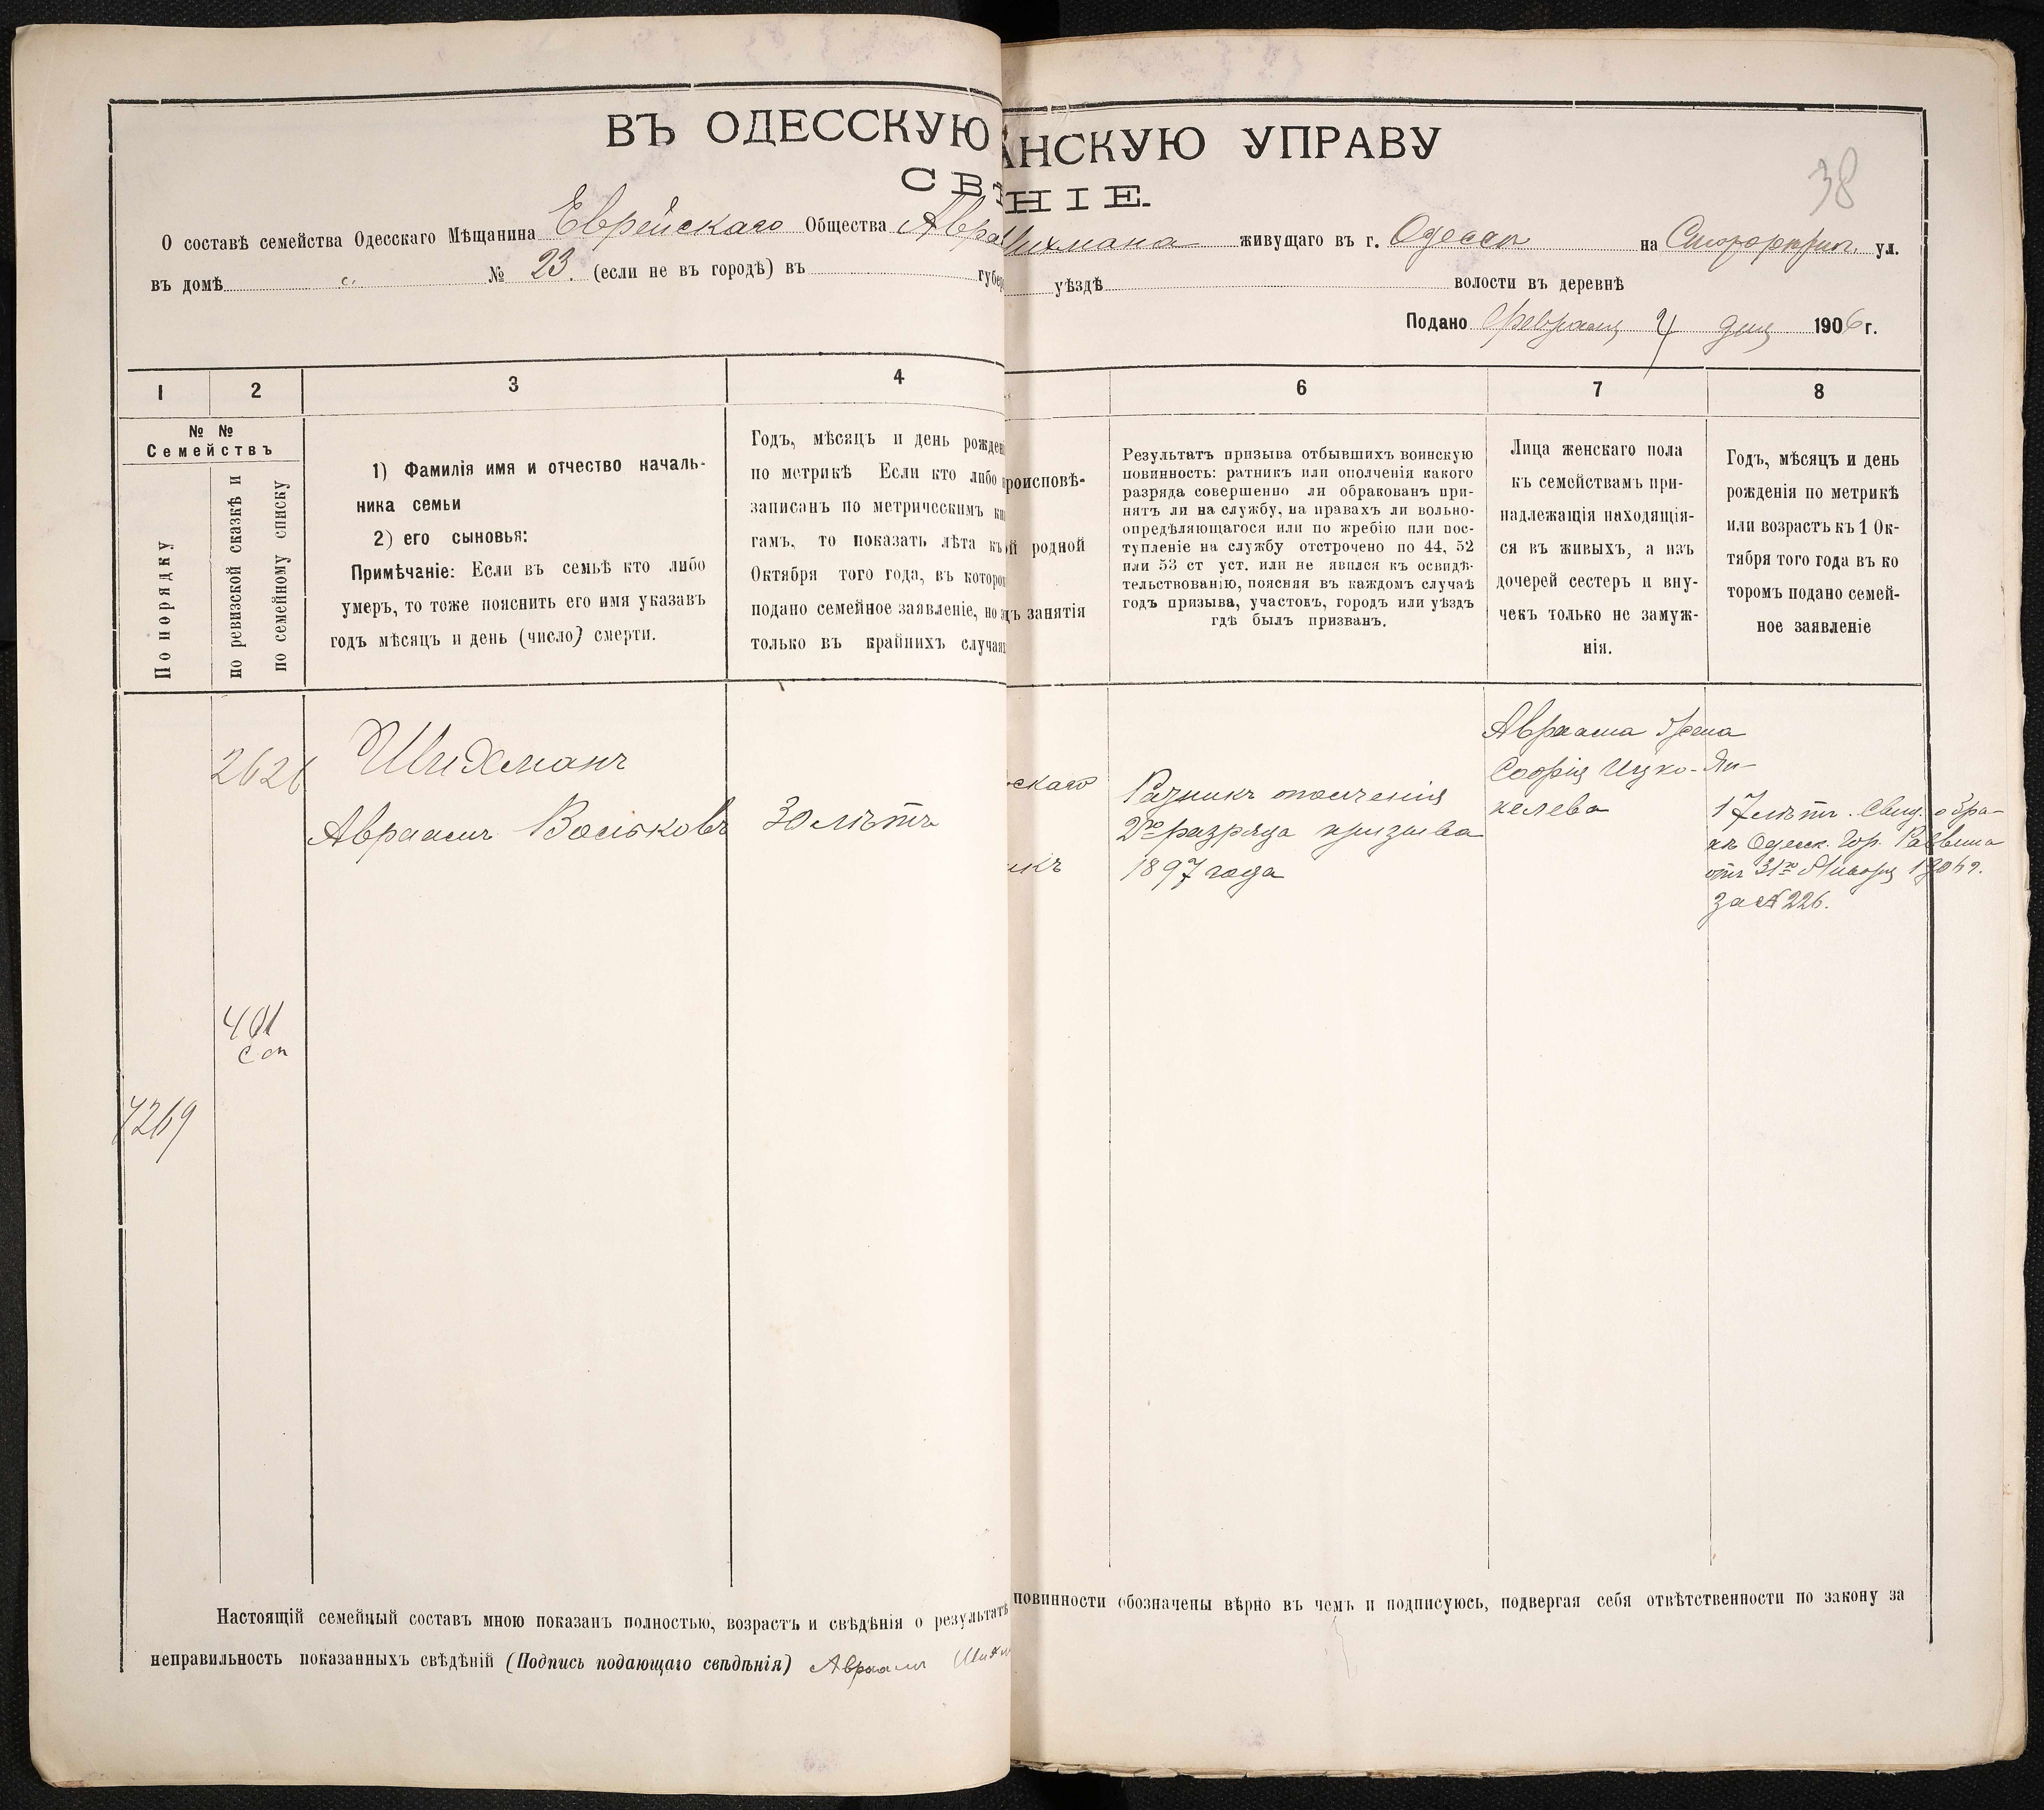 ВЪ ОДЕССКУЮ АНСКУЮ УПРАВУ
38
СВѢ НІЕ.
О составѣ семейства Одесскаго Мѣщанина Еврейскаго Общества Авра Шихмана живущаго въ г. Одессѣ на ул.
въ домѣ " № 23. (если не въ городѣ) въ губер уѣздѣ волости въ деревнѣ
Подано Февраля 4 дня 1906 г.
1 2 3 4 6 7 8
№ №
Семействъ
По порядку
по ревизской сказкѣ и
по семейному списку
1) Фамилія имя и отчество началь-
ника семьи
2) его сыновья:
Примѣчаніе: Если въ семьѣ кто либо
умеръ, то тоже пояснить его имя указавъ
годъ мѣсяцъ и день (число) смерти.
Годъ, мѣсяцъ и день рожден
по метрикѣ Если кто либо
записанъ по метрическимъ кни
гамъ, то показать лѣта къ
Октября того года, въ которо
подано семейное заявленіе, но
только въ крайнихъ случая
роисповѣ-
й родной
ъ занятія
Результатъ призыва отбывшихъ воинскую
повинность: ратникъ или ополченія какого
разряда совершенно ли обракованъ при-
нятъ ли на службу, на правахъ ли вольно-
опредѣляющагося или по жребію или пос-
тупленіе на службу отстрочено по 44, 52
или 53 ст уст. или не явился къ освидѣ-
тельствованію, поясняя въ каждомъ случаѣ
годъ призыва, участокъ, городъ или уѣздъ
гдѣ былъ призванъ.
Лица женскаго пола
къ семействамъ при-
надлежащія находящія-
ся въ живыхъ, а изъ
дочерей сестеръ и вну-
чекъ только не замуж-
нія.
Годъ, мѣсяцъ и день
рожденія по метрикѣ
или возрастъ къ 1 Ок-
тября того года въ ко
торомъ подано семей-
ное заявленіе
2626
Шихманъ
Авраамъ Вольковъ
30 лѣтъ
скаго
икъ
Ратникъ ополченія
2го разряда призыва
1897 года
Авраама жена
Софія Ицко-Ян-
келева
17 лѣтъ. Свид. о бра-
кѣ Одесск. Гор. Раввина
отъ 31го Января 190 г.
за № 226.
401
4269
Настоящій семейный составъ мною показанъ полностью, возрастъ и свѣдѣнія о результатѣ повинности обозначены вѣрно въ чемъ и подписуюсь, подвергая себя отвѣтственности по закону за
неправильность показанныхъ свѣдѣній (Подпись подающаго свѣдѣнія) Авраамъ Шихм